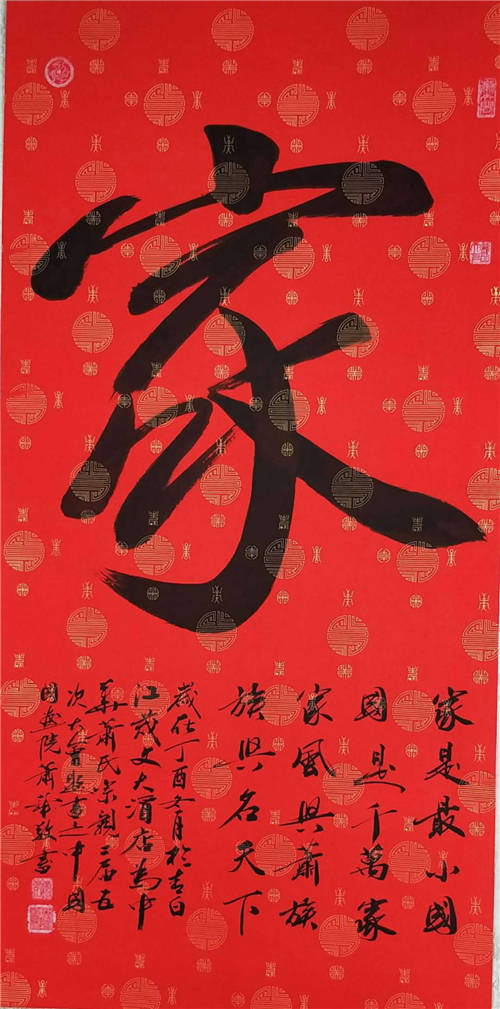 家
家是最小國
國是千萬家
家風興蕭族
族興名天下
歲在丁酉冬月於吉日
江大酒店為中
華蕭氏宗親屆五
次大會中國
國畫院蕭